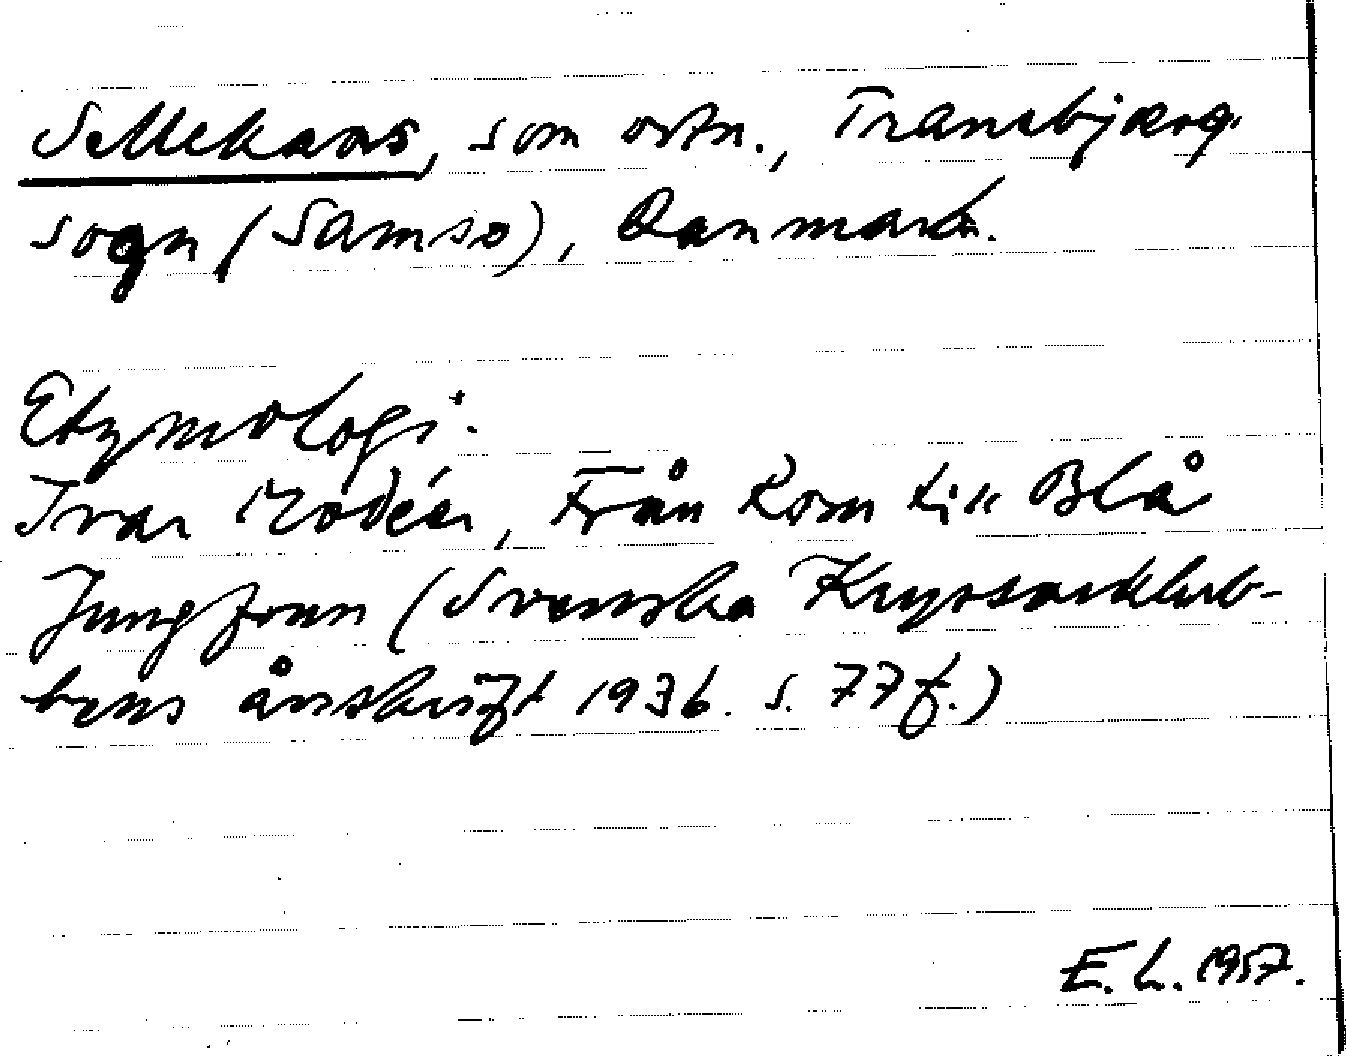 Sellekaas, som ortn., Tranebjærg
sogn (Samsø), Danmark.
Etymologi:
Ivar Modéer, Från Korn till Blå
Jungfrun (Svenska Kryssarklub-
bens årsskrift 1936. s. 77 f.)
E. L. 1957.